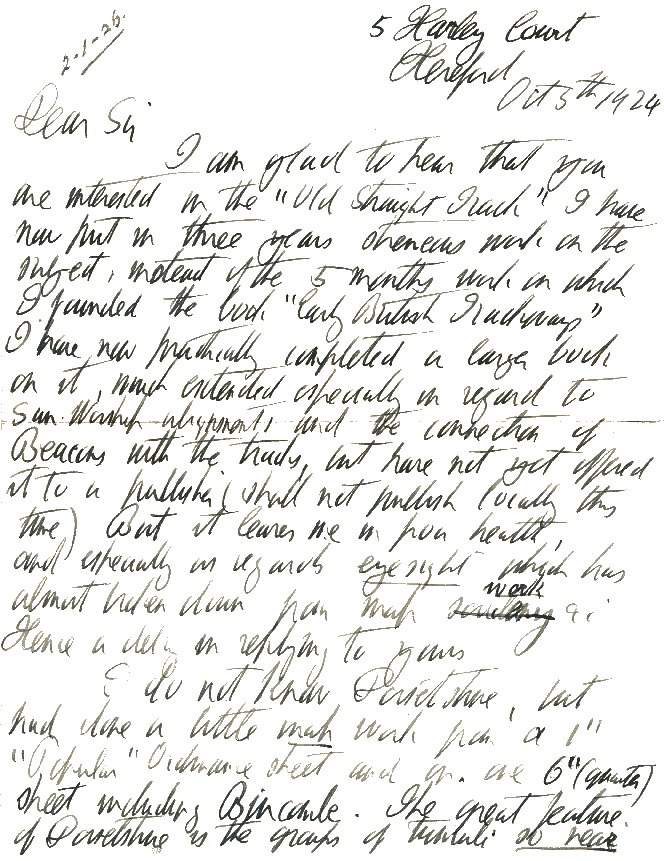 2-1-26.
5 Harley Court
Hereford
Oct 5th 1924
Dear Sir
I am glad to hear that you
are interested in the "Old Straight Track" I have
now put in three years strenuous work on the
subject, instead of the 5 months work on which
I founded the book "Early British Trackways"
I have now practically completed a larger book
on it, much extended especially in regard to
Sun-Worship alignments, and the connection of
Beacons with the tracks, but have not yet offered
it to a publisher (shall not publish locally this
time) But it leaves me in poor health,
and especially as regards eyesight which has
almost broken down from map work &c
Hence a delay in replying to yours
I do not know Dorsetshire, but
had done a little map work from a 1"
"Popular" Ordnance sheet and on one 6" (quarter)
sheet including Bincombe. The great feature
of Dorsetshire is the groups of tumuli so near